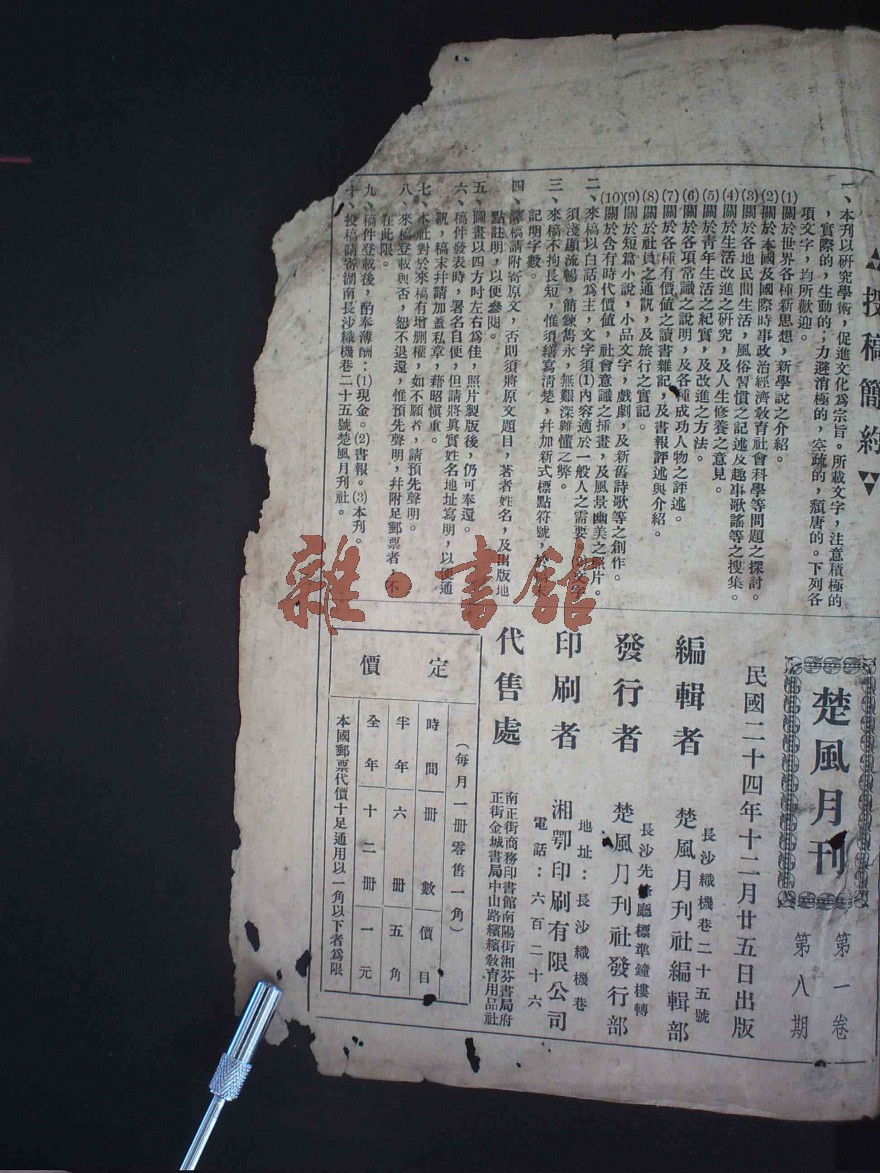 投稿簡約
一、本刊以研究學術，促進文化爲宗旨。所載文字，注意積極的
，實際的，生動的；力避消極的，空疏的，頹唐的。下列各
項文字，均所歡迎。
(1)關於世界各種新思想，新學說之介紹。
(2)關於本國及國際時事政治經濟教育社會科學等問題之探討。
(3)關於各地民間生活，風俗習慣之記述及趣事歌謠等之搜集。
(4)關於生活改進之研究，及人生修養之意見。
(5)關於青年生活之紀實，及改進之方法。
(6)關於各項常識之說明，及各種成功人物之評述。
(7)關於各種有價值之讀書雜記，及書報評述與介紹。
(8)關於社員之通訊，及旅行之實記。
(9)關於短篇小說，小品文字，戲劇，及新舊詩歌等之創作。
(10)關於含有時代價値，社會意識之插畫，及風景幽美之照片。
二、來稿以白話爲主，文字須(1)內容適於一般人之需要，文字
須淺顯流暢，簡鍊雋永，無艱深難懂之弊。
三、來稿不拘長短，惟須繕寫清楚，幷加新式標點符號，於
記明字數。
四、譯稿請附寄原文，否則須將原文題目，著者姓名，及出版地
點註明，以便參閱。
五、圖畫以四方吋左右爲佳，照片製版後，仍可奉還。
六、稿件發表時，署名自便，但請將眞實姓名地址寫明，以便通
訊，稿末幷請加蓋私章，藉昭愼重。
七、本社對於來稿有增删權，如不願者，請預先聲明。
八、來稿登載與否，恕不退還，惟預先聲明，幷附足郵票者，不
在此限。
九、稿件登載後，酌奉薄酬：(1)現金。(2)書報。(3)本刊。
十、投稿請寄湖南長沙織機巷二十五號楚風月刊社。
楚風月刊
第一卷
第八期
民國二十四年十二月廿五日出版
編輯者
長沙織機巷二十五號
楚風月刊社編輯部
發行者
長沙先鋒廳標準鐘樓轉
楚風月刊社發行部
印刷者
地址：長沙織機巷
湘鄂印刷有限公司
電話：六百二十六
代售處
南正街商務印書館南陽街湘芬書局府
正街金城書局中山路繽繽教育用品社
定價
（每月一冊零售一角）
時間 冊數 價目
半年 六冊 五角
全年 十二冊 一元
本國郵票代價十足通用以一角以下者爲限
雜·書館